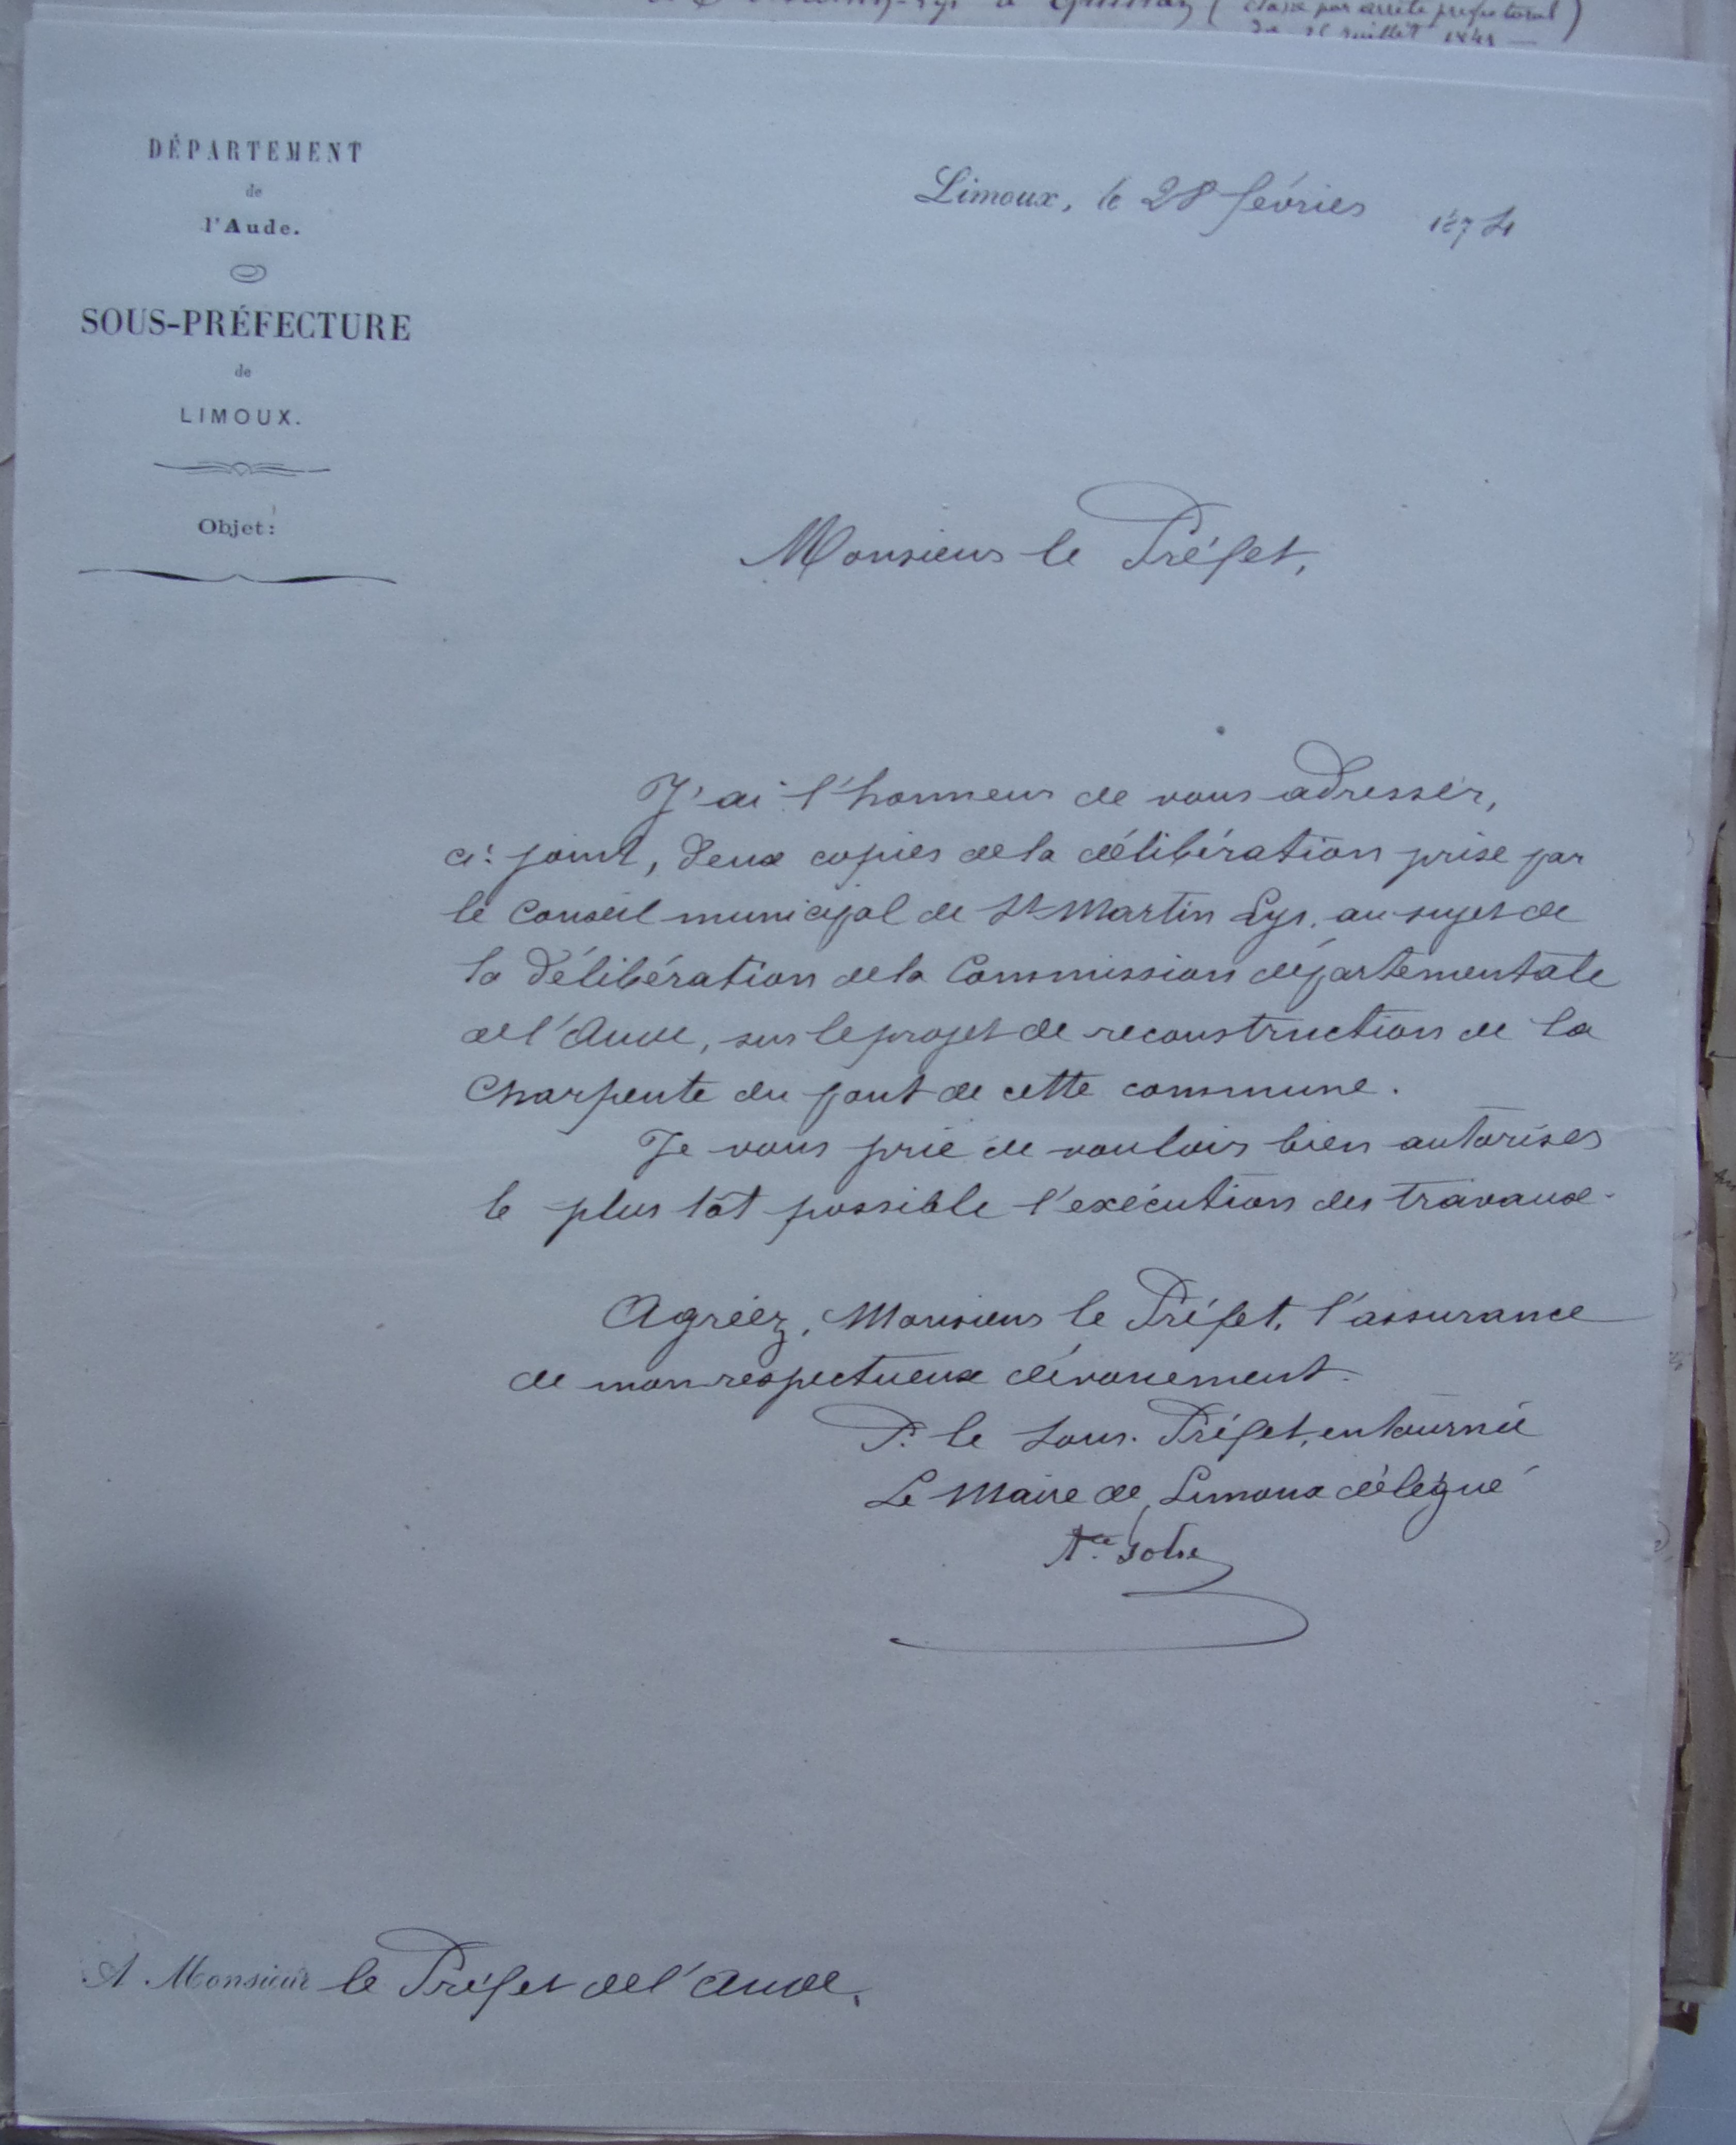 classé par arrêté préfectoral)
juillet
DÉPARTEMENT
de
l'Aude.
SOUS-PRÉFECTURE
de
LIMOUX.
Objet:
Limoux, le 28 février 1874
Monsieur le Préfet,
J'ai l'honneur de vous adresser,
ci-joint, deux copies de la délibération prise par
le Conseil municipal de St Martin Lys, au sujet de
la délibération de la Commission départementale
de l'Aude, sur le projet de reconstruction de la
Charpente du pont de cette commune.
Je vous prie de vouloir bien autoriser
le plus tôt possible l'exécution des travaux.
Agréez, Monsieur le Préfet, l'assurance
de mon respectueux dévouement.
P. le Sous-Préfet, en tournée
Le Maire de Limoux délégué
A Monsieur le Préfet de l'Aude.